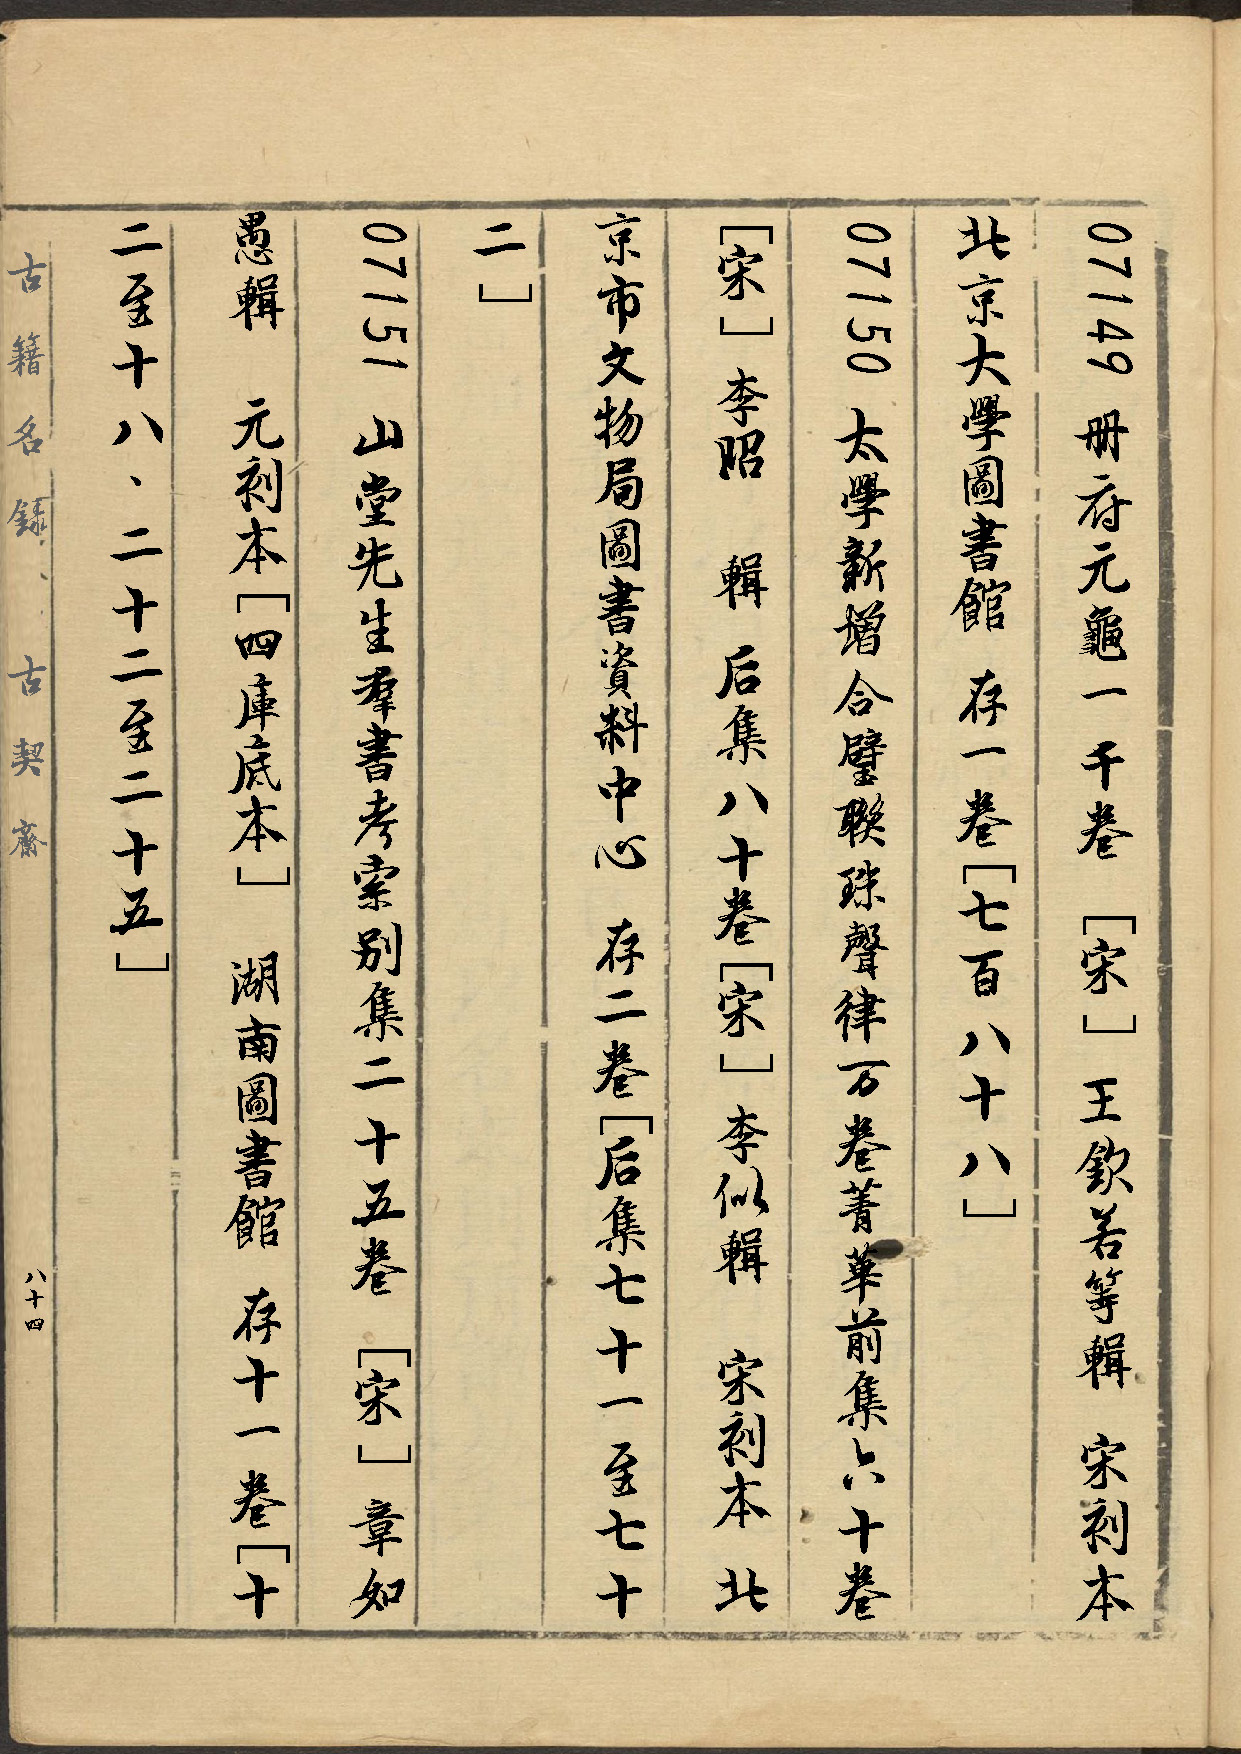 07149 冊府元龜一千卷 [宋] 王欽若等輯 宋刻本
北京大學圖書館 存一卷[七百八十八]
07150 太學新增合璧聯珠聲律万卷菁華前集六十卷
[宋] 李昭 輯 后集八十卷[宋] 李似輯 宋刻本 北
京市文物局圖書資料中心 存二卷[后集七十一至七十
二]
07151 山堂先生羣書考索別集二十五卷 [宋] 章如
愚輯 元刻本[四庫底本] 湖南圖書館 存十一卷[十
二至十八、二十二至二十五]
古籍名錄、古契齋
八十四